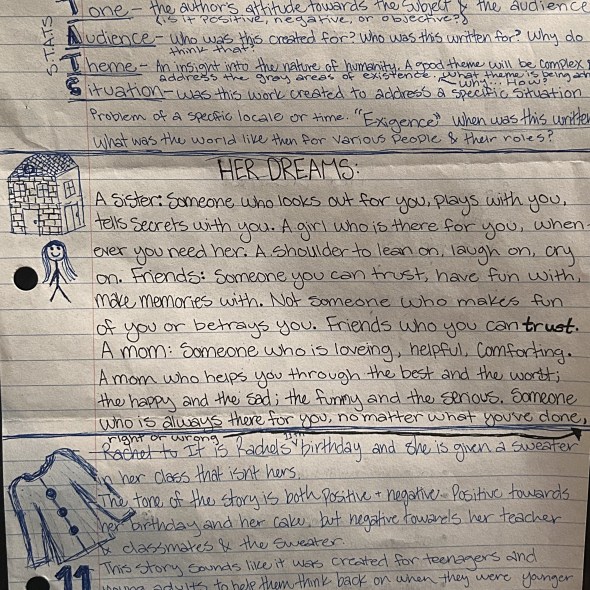 Tone - the author's attitude towards the subject & the audience
(is it positive, negative, or objective?)
5 TATS
Audience - Who was this created for? Who was this written for? Why do
think that?
Theme - An insight into the nature of humanity. A good theme will be complex &
address the gray areas of existence. What theme is being
Why? How?
Situation - was this work created to address a specific situation
Problem of a specific locale or time. "Exigence" when was this written
What was the world like then for various people & their roles?
HER DREAMS:
A sister: Someone who looks out for you, plays with you,
tells secrets with you. A girl who is there for you, when-
ever you need her. A shoulder to lean on, laugh on, cry
on. Friends: Someone you can trust, have fun with,
make memories with. Not someone who makes fun
of you or betrays you. Friends who you can trust.
A mom: Someone who is loveing, helpful, comforting.
A mom who helps you through the best and the worst;
the happy and the sad; the funny and the serious. Someone
who is always there for you, no matter what you've done,
right or wrong
Rachel to It is Rachels 11th birthday and she is given a sweater
in her class that isnt hers.
The tone of the story is both positive + negative - Positive towards
her birthday and her cake, but negative towards her teacher
& classmates & the sweater.
11 This story sounds like it was created for teenagers and
young adults to help them think back on when they were younger